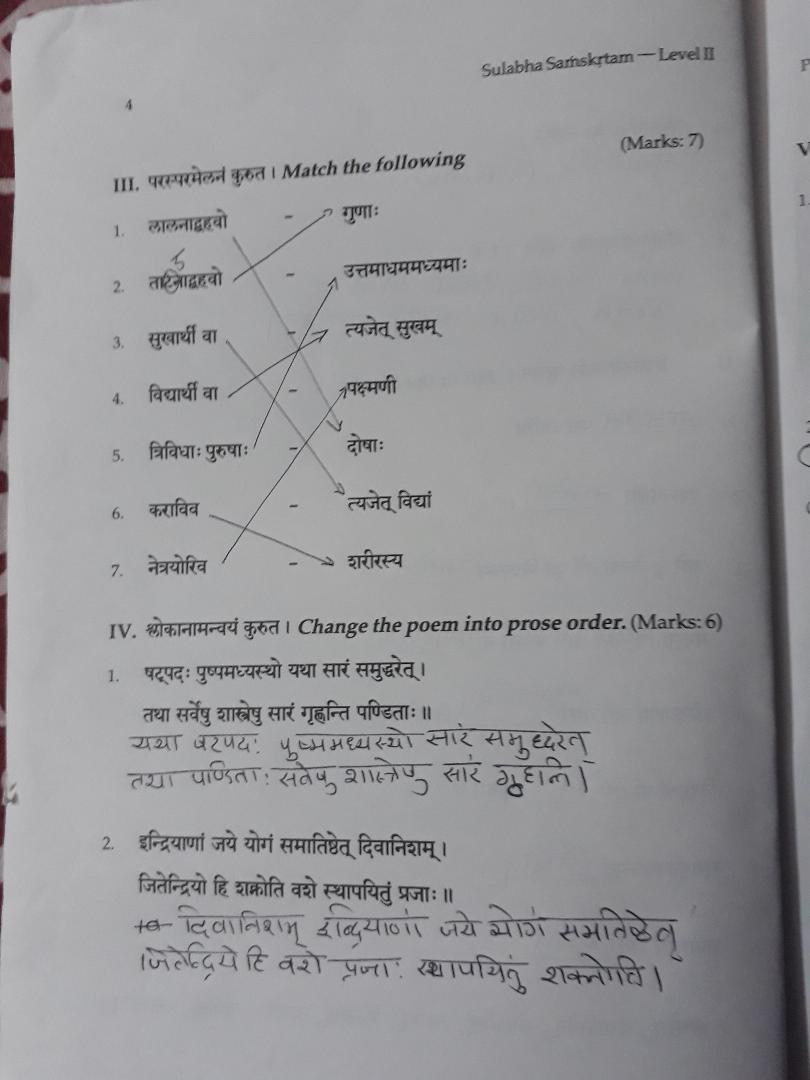 Sulabha Saṁskṛtam — Level II
4
III. परस्परमेलनं कुरुत । Match the following (Marks: 7)
1. लालनाद्बहवो - गुणाः
2. ताटनाद्बहवो - उत्तमाधममध्यमाः
ड
3. सुखार्थी वा - त्यजेत् सुखम्
4. विद्यार्थी वा - पक्ष्मणी
5. त्रिविधाः पुरुषाः - दोषाः
6. कराविव - त्यजेत् विद्यां
7. नेत्रयोरिव - शरीरस्य
IV. श्लोकानामन्वयं कुरुत । Change the poem into prose order. (Marks: 6)
1. षट्पदः पुष्पमध्यस्थो यथा सारं समुद्धरेत् ।
तथा सर्वेषु शास्त्रेषु सारं गृह्णन्ति पण्डिताः ॥
यथा षटपदः पुष्पमध्यस्थो सारं समुध्दरेत्
तथा पण्डिताः सर्वेषु शास्त्रेषु सारं
2. इन्द्रियाणां जये योगं समातिष्ठेत् दिवानिशम् ।
जितेन्द्रियो हि शक्नोति वशे स्थापयितुं प्रजाः ॥
दिवानिशम् इन्द्रियाणां जये योगं समातिष्ठेत्
जितेन्द्रिये हि वशे प्रजाः स्थापयितुं शक्नोति ।
P
V
1.